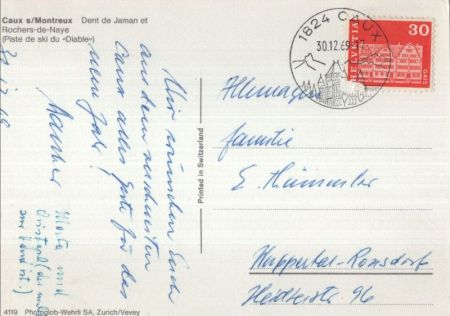 Caux s/Montreux Dent de Jaman et
Rochers-de-Naye
(Piste de ski du «Diable»)
Wir wünschen Euch
aus dem verschneiten
Caux alles Gute für das
neue Jahr!
Marta und
1824 CAUX
30.12.69
HELVETIA
30
Printed in Switzerland
Allemagne
Familie
E. Hümmler
Wuppertal-Ronsdorf
96
4119 Photoglob-Wehrli SA, Zurich/Vevey